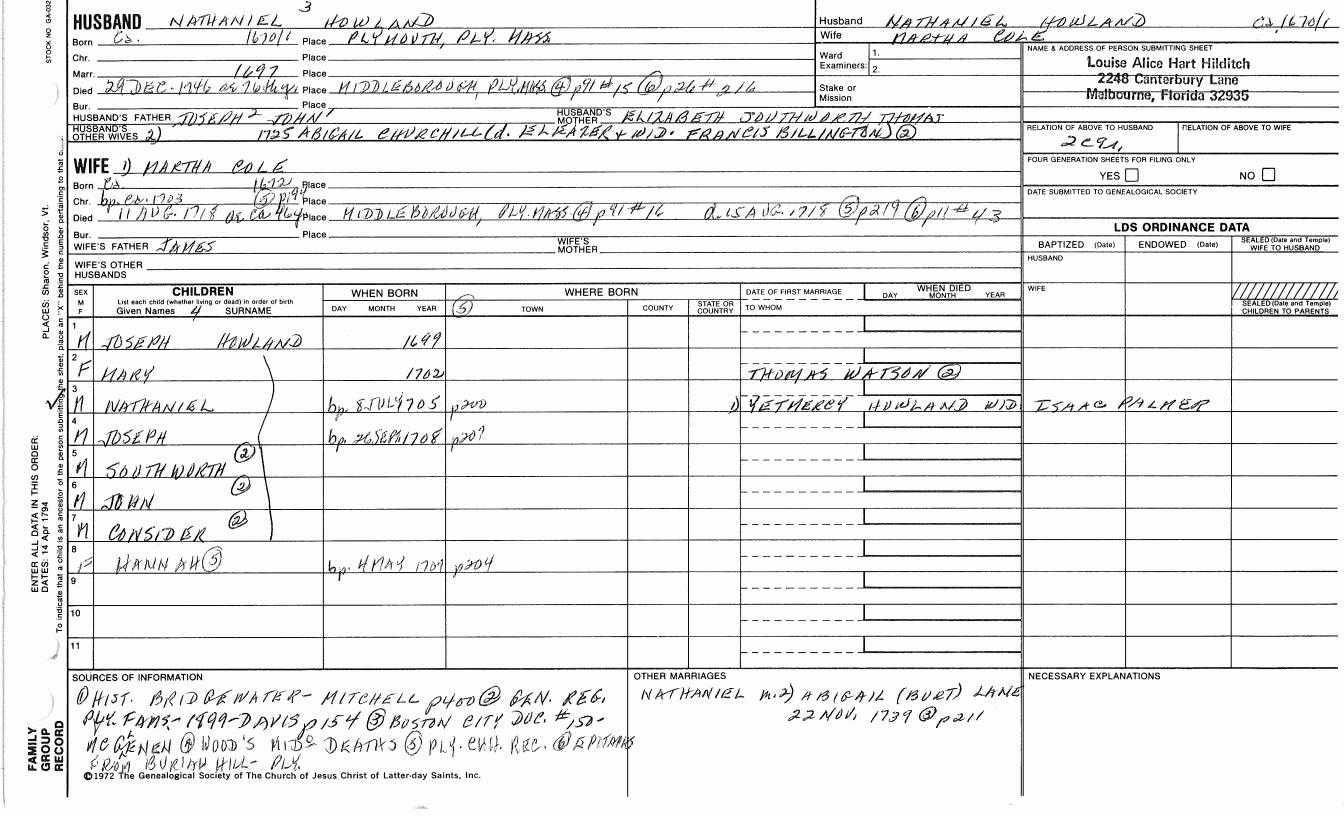 STOCK NO GA-032
3
HUSBAND NATHANIEL HOWLAND
Born Ca. 1670/1 Place PLYMOUTH, PLY. MASS
Chr. Place
Marr. 1697 Place
Died 29 DEC. 1746 ae 76th yr Place MIDDLEBOROUGH, PLY.MASS ④ p91 #15 ⑥ p26 # 216
Bur. Place
HUSBAND'S FATHER JOSEPH² JOHN¹ HUSBAND'S MOTHER ELIZABETH SOUTHWORTH THOMAS
HUSBAND'S OTHER WIVES 2) 1725 ABIGAIL CHURCHILL (d. ELEAZER + WID. FRANCIS BILLINGTON) ②
WIFE 1) MARTHA COLE
Born Ca. 1672 Place
Chr. bp. ca. 1703 ⑤ p194 Place
Died 11 AUG. 1718 ae ca 46 y Place MIDDLEBOROUGH, PLY.MASS ④ p91 #16 d. 15 AUG. 1718 ⑤ p219 ⑥ p11 # 43
Bur. Place
WIFE'S FATHER JAMES WIFE'S MOTHER
WIFE'S OTHER HUSBANDS
Husband NATHANIEL HOWLAND Ca. 1670/1
Wife MARTHA COLE
Ward Examiners: 1.
2.
Stake or Mission
NAME & ADDRESS OF PERSON SUBMITTING SHEET
Louise Alice Hart Hilditch
2248 Canterbury Lane
Melbourne, Florida 32935
RELATION OF ABOVE TO HUSBAND RELATION OF ABOVE TO WIFE
FOUR GENERATION SHEETS FOR FILING ONLY
YES NO
DATE SUBMITTED TO GENEALOGICAL SOCIETY
LDS ORDINANCE DATA
BAPTIZED (Date) ENDOWED (Date) SEALED (Date and Temple) WIFE TO HUSBAND
HUSBAND
WIFE
SEALED (Date and Temple) CHILDREN TO PARENTS
SEX M F
CHILDREN
List each child (whether living or dead) in order of birth
Given Names 4 SURNAME
WHEN BORN
DAY MONTH YEAR
⑤
WHERE BORN
TOWN COUNTY STATE OR COUNTRY
DATE OF FIRST MARRIAGE
TO WHOM
WHEN DIED
DAY MONTH YEAR
1 M JOSEPH HOWLAND 1699
2 F MARY 1702 THOMAS WATSON ②
3 M NATHANIEL bp. 8 JULY 1705 p200 1) YETMERCY HOWLAND WID ISAAC PALMER
4 M JOSEPH bp. 26 SEPT 1708 p207
5 M SOUTHWORTH ②
6 M JOHN ②
7 M CONSIDER ②
8 F HANNAH ⑤ bp. 4 MAY 1707 p204
9
10
11
SOURCES OF INFORMATION
① HIST. BRIDGEWATER - MITCHELL p400 ② GEN. REG.
PLY. FAMS - 1899 - DAVIS p154 ③ BOSTON CITY DOC. #150 -
MCGLENEN ④ WOOD'S MIDO DEATHS ⑤ PLY. CHH. REC. ⑥ EPITAPHS
FROM BURIAL HILL - PLY.
©1972 The Genealogical Society of The Church of Jesus Christ of Latter-day Saints, Inc.
OTHER MARRIAGES
NATHANIEL m. 2) ABIGAIL (BURT) LANE
22 NOV. 1739 ③ p211
NECESSARY EXPLANATIONS
PLACES: Sharon, Windsor, Vt.
ENTER ALL DATA IN THIS ORDER:
DATES: 14 Apr 1794
To indicate that a child is an ancestor of the person submitting the sheet, place an "X" behind the number pertaining to that
FAMILY GROUP RECORD